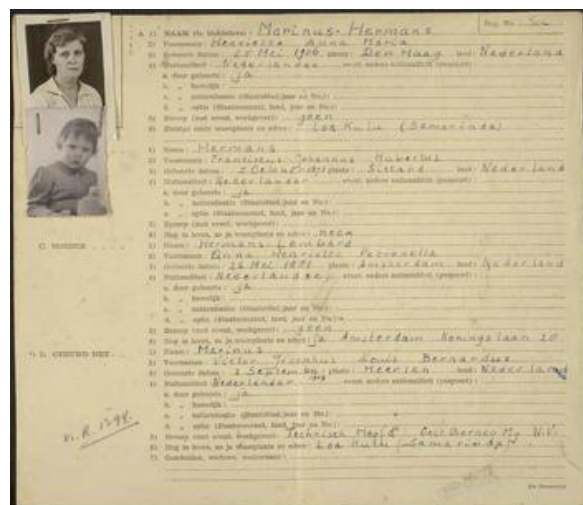 A. 1) NAAM (in blokletters): Marinus-Hermans Reg. No.
2) Voornamen: Henriette Anna Maria
3) Geboorte datum: 25 Mei 1906 plaats: Den Haag land: Nederland
4) Nationaliteit: Nederlandse event. andere nationaliteit (paspoort):
a. door geboorte: ja
b. „ huwelijk:
c. „ naturalisatie (Staatsblad, jaar en No.):
d. „ optie (Staatsverband, land, jaar en No.):
5) Beroep (met event. werkgever): geen
6) Huidige woonplaats en adres: Loa Kulu (Samarinda)
1) Naam: Hermans
2) Voornamen: Franciscus Johannes Hubertus
3) Geboorte datum: plaats: Sittard land: Nederland
4) Nationaliteit: Nederlander event. andere nationaliteit (paspoort):
a. door geboorte: ja
b. „ huwelijk:
c. „ naturalisatie (Staatsblad, jaar en No.):
d. „ optie (Staatsverband, land, jaar en No.):
5) Beroep (met event. werkgever):
6) Nog in leven, zo ja woonplaats en adres: neen
C. MOEDER 1) Naam: Hermans-Lombard
2) Voornamen: Anna Henriette Petronella
3) Geboorte datum: 26 Mei 1881 plaats: Amsterdam land: Nederland
4) Nationaliteit: Nederlandse event. andere nationaliteit (paspoort):
a. door geboorte: ja
b. „ huwelijk:
c. „ naturalisatie (Staatsblad, jaar en No.):
d. „ optie (Staatsverband, land, jaar en No.):
5) Beroep (met event. werkgever): geen
6) Nog in leven, zo ja woonplaats en adres: ja Amsterdam Koningslaan 20
D. GEHUWD MET 1) Naam: Marinus
2) Voornamen: Victor Louis Bernardus
3) Geboorte datum: 2 Septemb. plaats: Heerlen land: Nederland
4) Nationaliteit: Nederlander event. andere nationaliteit (paspoort):
a. door geboorte: ja
b. „ huwelijk:
c. „ naturalisatie (Staatsblad, jaar en No.):
d. „ optie (Staatsverband, land, jaar en No.):
5) Beroep (met event. werkgever): Technisch Oost Borneo My N.V.
6) Nog in leven, zo ja woonplaats en adres: Loa Kulu (Samarinda)
7) Gescheiden, weduwe, weduwnaar: